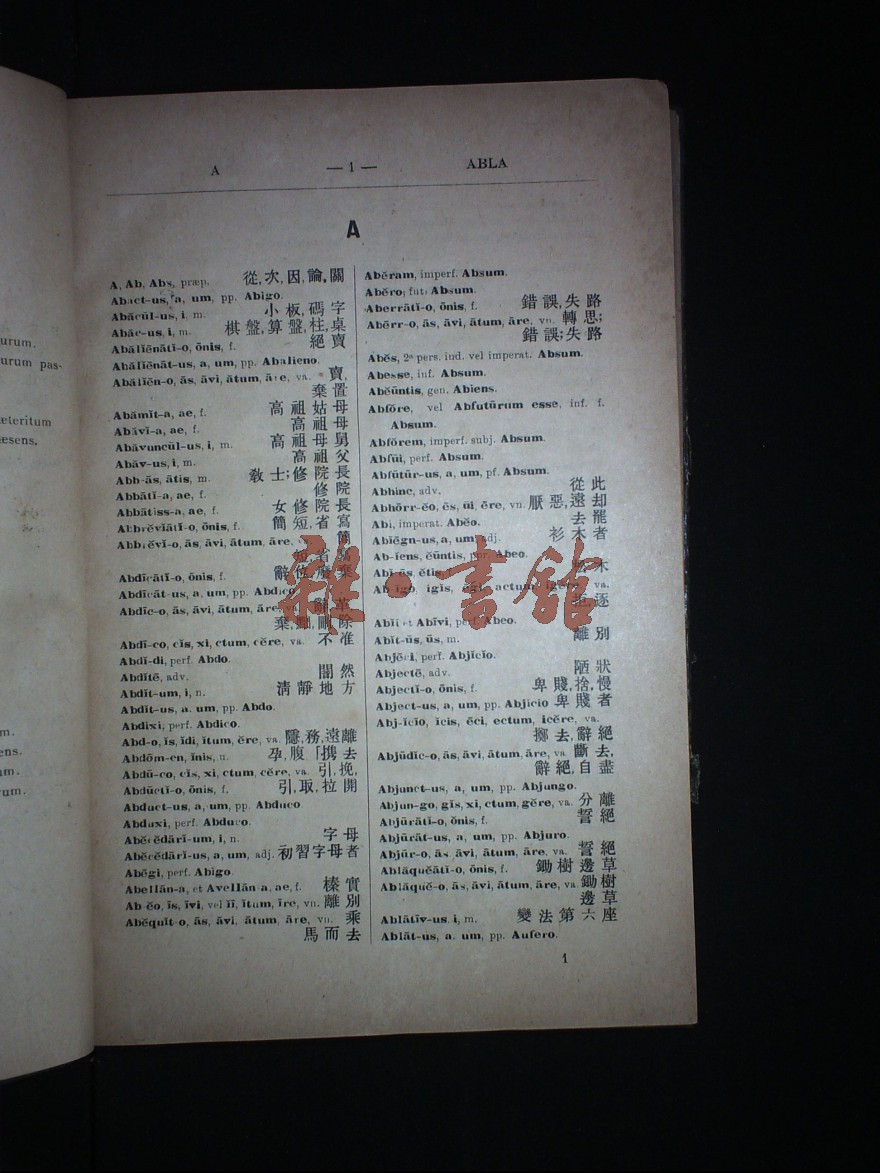 urum.
urum pas-
eteritum
æsens,
m.
ens.
um.
rum.
A — 1 — ABLA
A
A, Ab, Abs, præp. 從, 次, 因, 論, 關
Abact-us, a, um, pp. Abigo.
Abăcŭl-us, i, m. 小板, 碼字
Abăc-us, i, m. 棋盤, 算盤, 柱, 桌
Abălĭēnātĭ-o, ōnis, f. 絕賣
Abălĭēnāt-us, a, um, pp. Abalieno.
Abălĭēn-o, ās, āvi, ātum, āre, va. 賣,
棄置
Abămĭt-a, ae, f. 高祖姑母
Abăvĭ-a, ae, f. 高祖母
Abăvuncŭl-us, i, m. 高祖母舅
Abăv-us, i, m. 高祖父
Abb-ās, ātis, m. 教士; 修院長
Abbātĭ-a, ae, f. 修院
Abbātiss-a, ae, f. 女修院長
Abbrĕvĭātĭ-o, ōnis, f. 簡短, 省寫
Abbrĕvĭ-o, ās, āvi, ātum, āre, 簡
短, 省寫
Abdĭcātĭ-o, ōnis, f. 辭位, 廢棄
Abdĭcāt-us, a, um, pp. Abdico
Abdĭc-o, ās, āvi, ātum, āre, va. 辭革
棄, 刪除
Abdī-co, cĭs, xi, ctum, cĕre, va. 不准
Abdĭ-di, perf. Abdo.
Abdĭtē, adv. 闇然
Abdĭt-um, i, n. 清靜地方
Abdĭt-us, a. um, pp. Abdo.
Abdixi, perf. Abdico.
Abd-o, ĭs, ĭdi, ĭtum, ĕre, va. 隱, 務, 遠離
Abdōm-en, ĭnis, n. 孕, 腹「携去
Abdū-co, cĭs, xi, ctum, cĕre, va. 引, 挽,
Abdŭctĭ-o, ōnis, f. 引, 取, 拉開
Abduct-us, a, um, pp. Abduco
Abduxi, perf. Abduco.
Abĕcĕdārĭ-um, i, n. 字母
Abĕcĕdārĭ-us, a, um, adj. 初習字母者
Abēgi, perf. Abigo.
Abellān-a, et Avellān-a, ae, f. 榛實
Ab-ĕo, īs, īvi, vel ĭī, ĭtum, īre, vn. 離別
Abĕquĭt-o, ās, āvi, ātum, āre, vn. 乘
馬而去
Abĕram, imperf. Absum.
Abĕro, fut. Absum.
Aberrātĭ-o, ōnis, f. 錯誤, 失路
Abĕrr-o, ās, āvi, ātum, āre, vn. 轉思;
錯誤; 失路
Abĕs, 2ª pers. iud. vel imperat. Absum.
Abesse, inf. Absum.
Abĕŭntis, gen. Abiens.
Abfŏre, vel Abfutūrum esse, inf. f.
Absum.
Abfŏrem, imperf. subj. Absum.
Abfŭi, perf. Absum.
Abfŭtūr-us, a, um, pf. Absum.
Abhinc, adv. 從此
Abhŏrr-ĕo, ēs, ŭi, ēre, vn. 厭惡, 遠却
Abi, imperat. Abĕo. 去罷
Abĭēgn-us, a, um, adj. 杉木者
Ab-ĭens, ĕŭntis, ppr. Abeo.
Abĭ-ēs, ĕtis, 木
Ab-ĭgo, ĭgĭs, ēgi, actum, ĭgĕre, va.
拒逐
Abĭi et Abīvi, perf. Abeo.
Abĭt-ŭs, ūs, m. 離別
Abjēci, perf. Abjĭcĭo.
Abjectē, adv. 陋狀
Abjectĭ-o, ōnis, f. 卑賤, 捨, 慢
Abject-us, a, um, pp. Abjicio 卑賤者
Abj-ĭcĭo, ĭcis, ēci, ectum, icĕre, va.
擲去, 辭絕
Abjūdĭc-o, ās, āvi, ātum, āre, va. 斷去,
辭絕, 自盡
Abjunct-us, a, um, pp. Abjungo.
Abjun-go, gĭs, xi, ctum, gĕre, va. 分離
Abjūrātĭ-o, ōnis, f. 誓絕
Abjūrāt-us, a, um, pp. Abjuro.
Abjūr-o, ās, āvi, ātum, āre, va. 誓絕
Ablăquĕātĭ-o, ōnis, f. 鋤樹邊草
Ablăquĕ-o, ās, āvi, ātum, āre, va. 鋤樹
邊草
Ablātīv-us, i, m. 變法第六座
Ablāt-us, a. um, pp. Aufero.
1
雜·書館